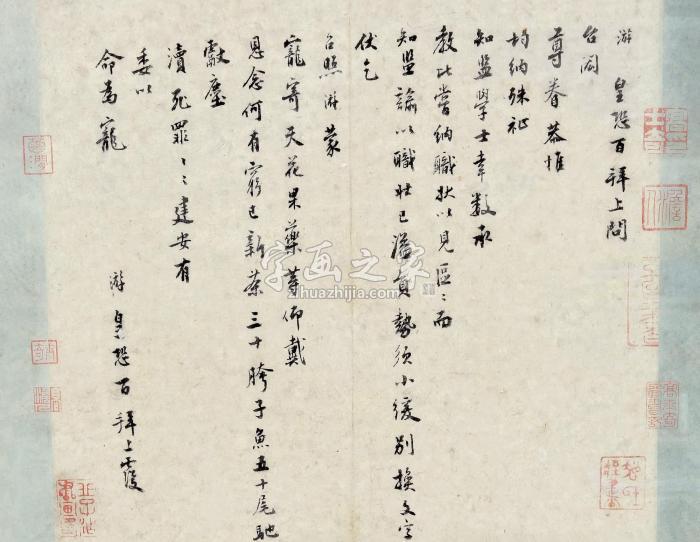 游 皇恐百拜上問
台閤
尊眷恭惟
均納殊祉
知監學士幸數承
教比嘗納職狀以見區〻而
知監諭以職狀已溢員勢須小緩別換文字
伏乞
台照游蒙
寵寄天花果藥等仰戴
恩念何有窮已新茶三十胯子魚五十尾馳
獻塵
瀆死罪〻〻建安有
委以
命為寵
游 皇恐百拜上覆
字画之家
zihuazhijia.com